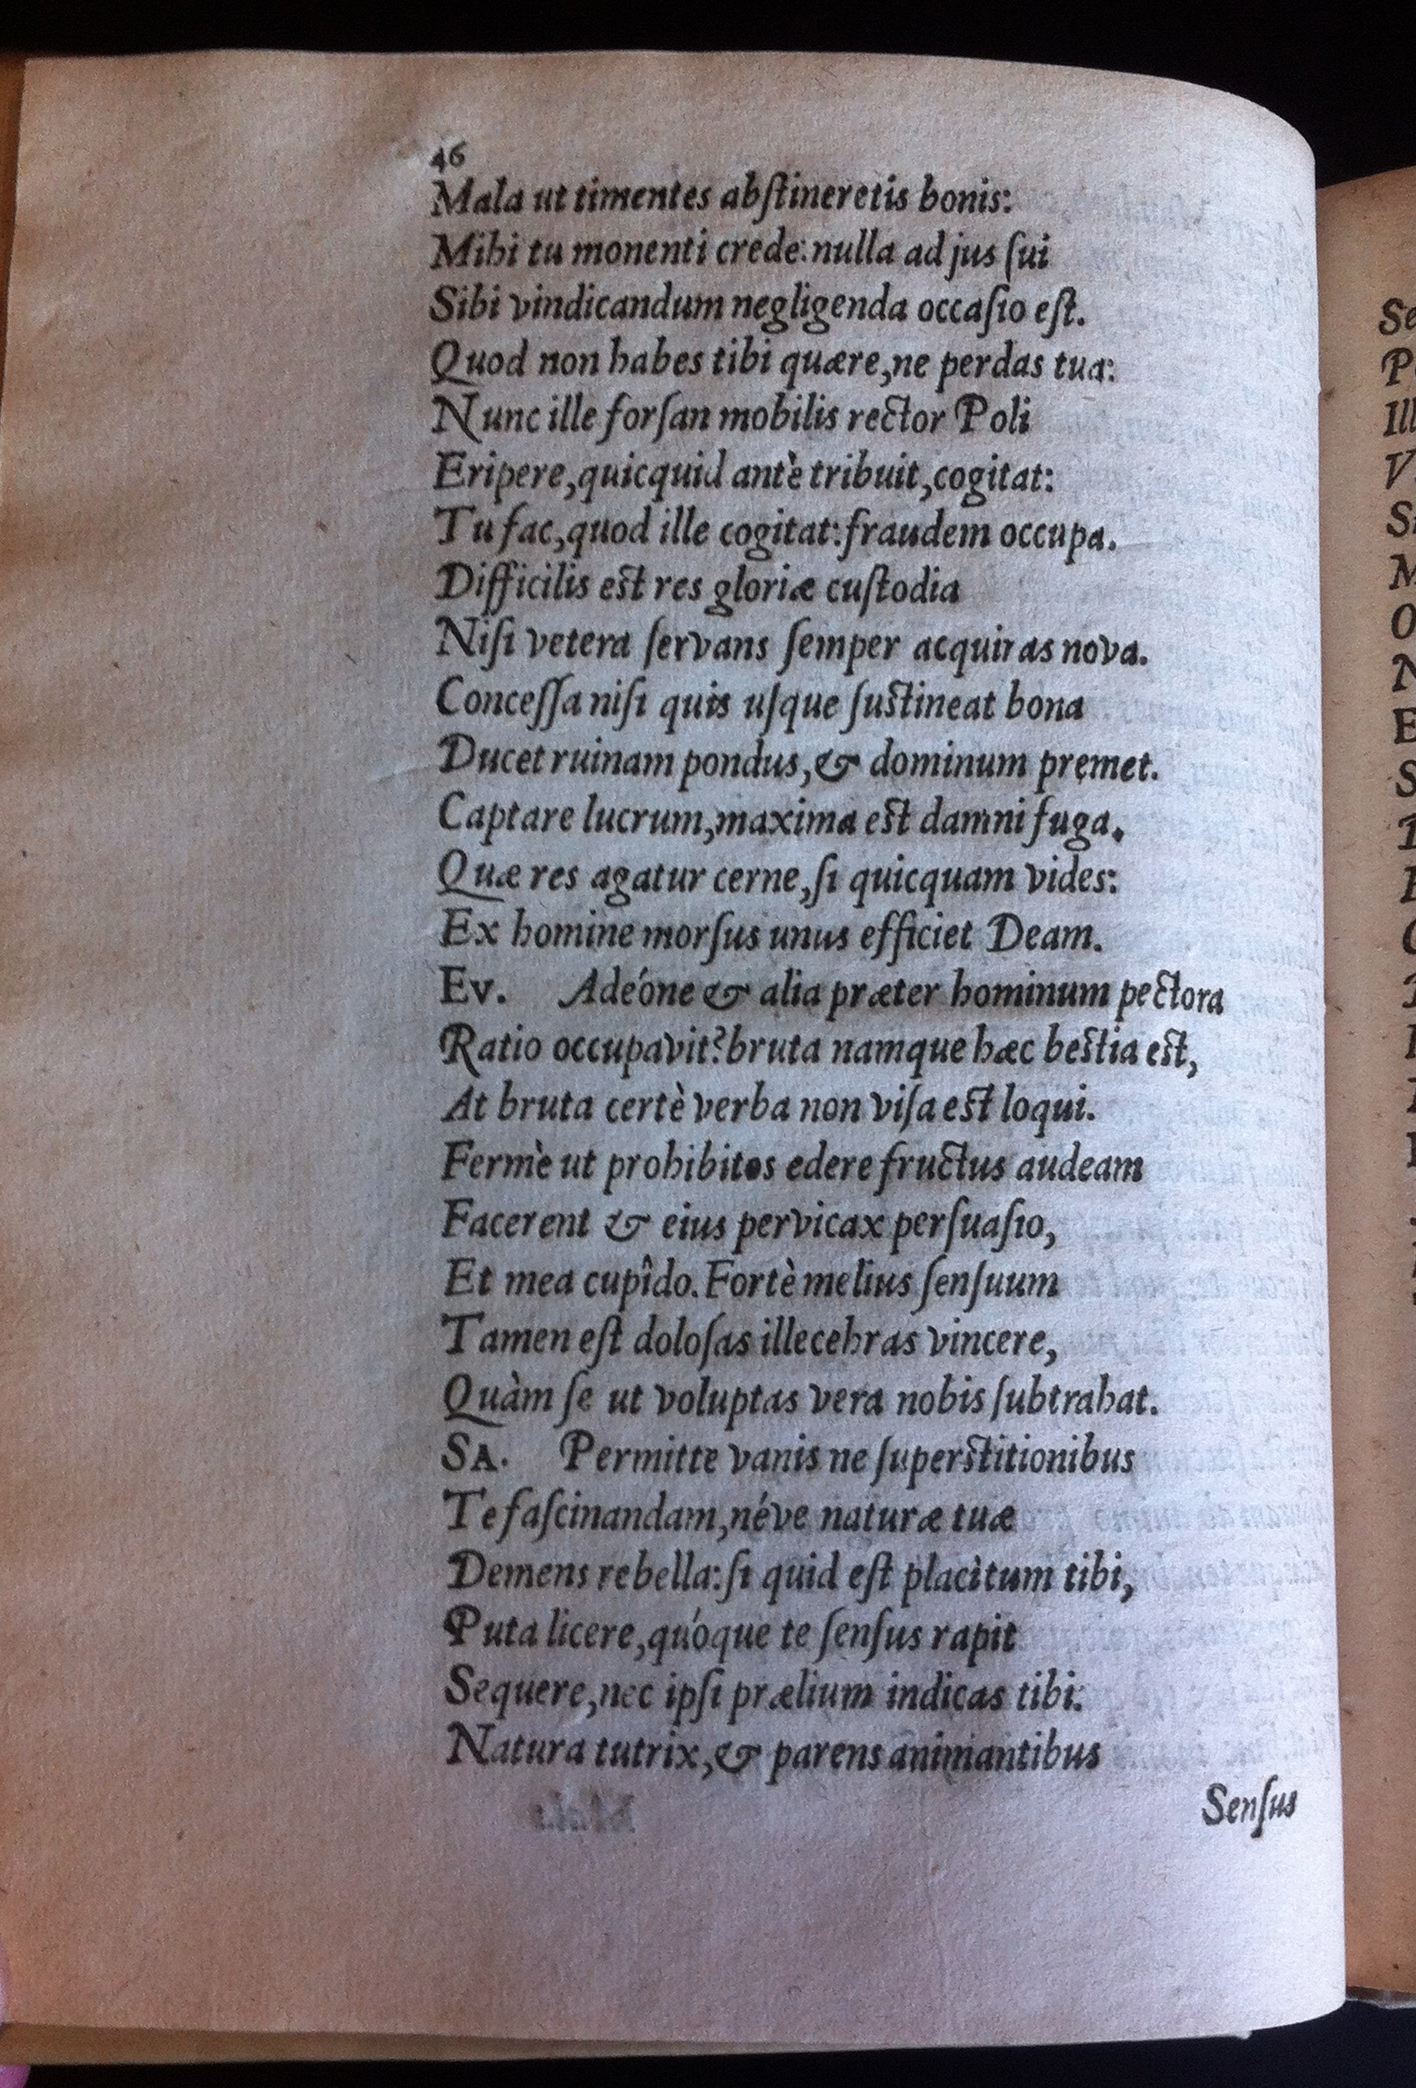 46
Mala ut timentes abſtineretis bonis:
Mihi tu monenti crede: nulla ad jus ſui
Sibi vindicandum negligenda occaſio eſt.
Quod non habes tibi quære, ne perdas tua:
Nunc ille forſan mobilis rector Poli
Eripere, quicquid antè tribuit, cogitat:
Tu fac, quod ille cogitat: fraudem occupa.
Difficilis eſt res gloriæ cuſtodia
Niſi vetera ſervans ſemper acquiras nova.
Conceſſa niſi quis uſque ſuſtineat bona
Ducet ruinam pondus, & dominum premet.
Captare lucrum, maxima eſt damni fuga.
Quæ res agatur cerne, ſi quicquam vides:
Ex homine morſus unus efficiet Deam.
Ev. Adeóne & alia præter hominum pectora
Ratio occupavit? bruta namque hæc beſtia eſt,
At bruta certè verba non viſa eſt loqui.
Fermè ut prohibitos edere fructus audeam
Facerent & eius pervicax perſuaſio,
Et mea cupîdo. Fortè melius ſenſuum
Tamen eſt doloſas illecebras vincere,
Quàm ſe ut voluptas vera nobis ſubtrahat.
SA. Permitte vanis ne ſuperſtitionibus
Te faſcinandam, néve naturæ tuæ
Demens rebella: ſi quid eſt placìtum tibi,
Puta licere, quóque te ſenſus rapit
Sequere, nec ipſi prælium indicas tibi.
Natura tutrix, & parens animantibus
Senſus